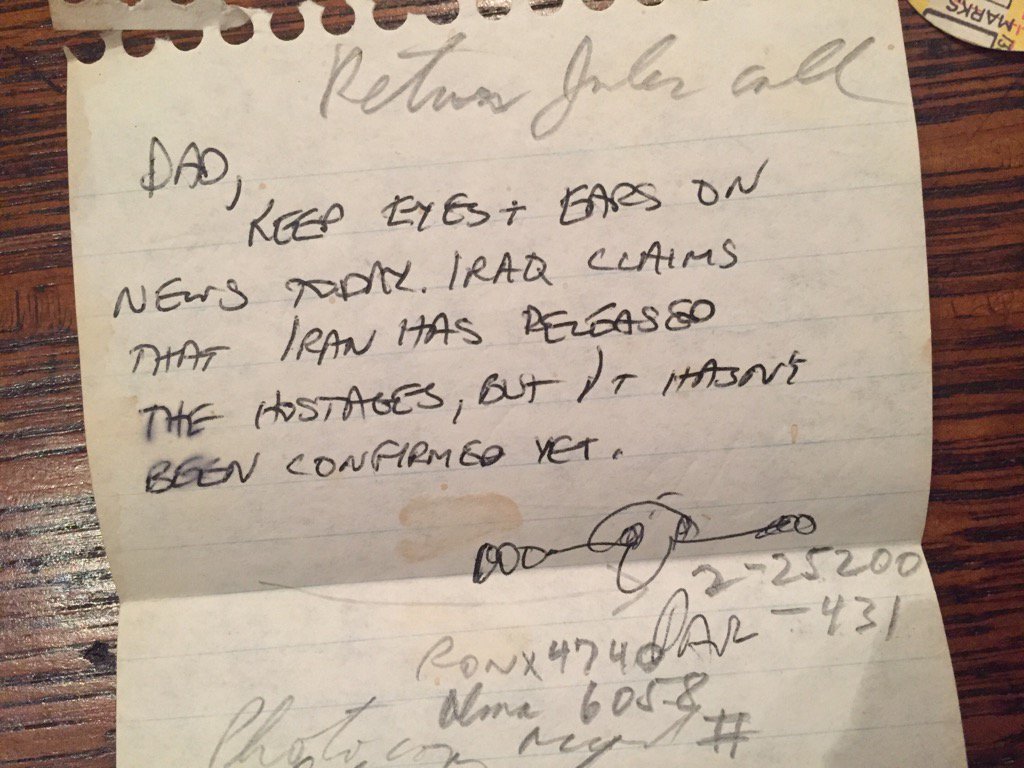 -MARKS
Return Jules call
DAD,
KEEP EYES + EARS ON
NEWS TODAY. IRAQ CLAIMS
THAT IRAN HAS RELEASED
THE HOSTAGES, BUT IT HASN'T
BEEN CONFIRMED YET.
2-25200
-431
RON X4740
Alma 6058
Photo copy #